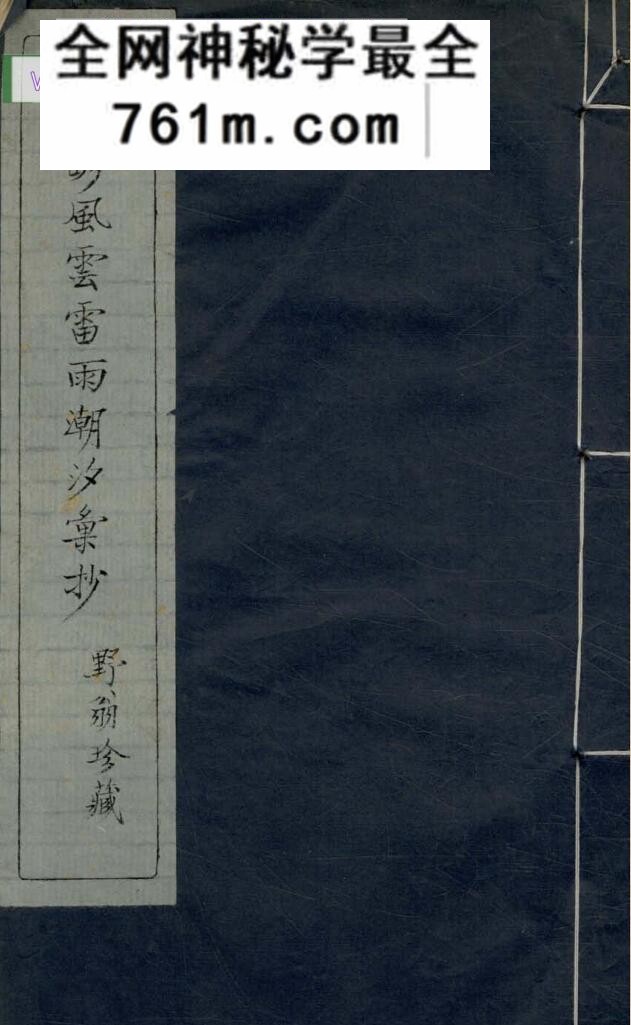 全网神秘学最全
761m.com
風雲雷雨潮汐彙抄
野翁珍藏